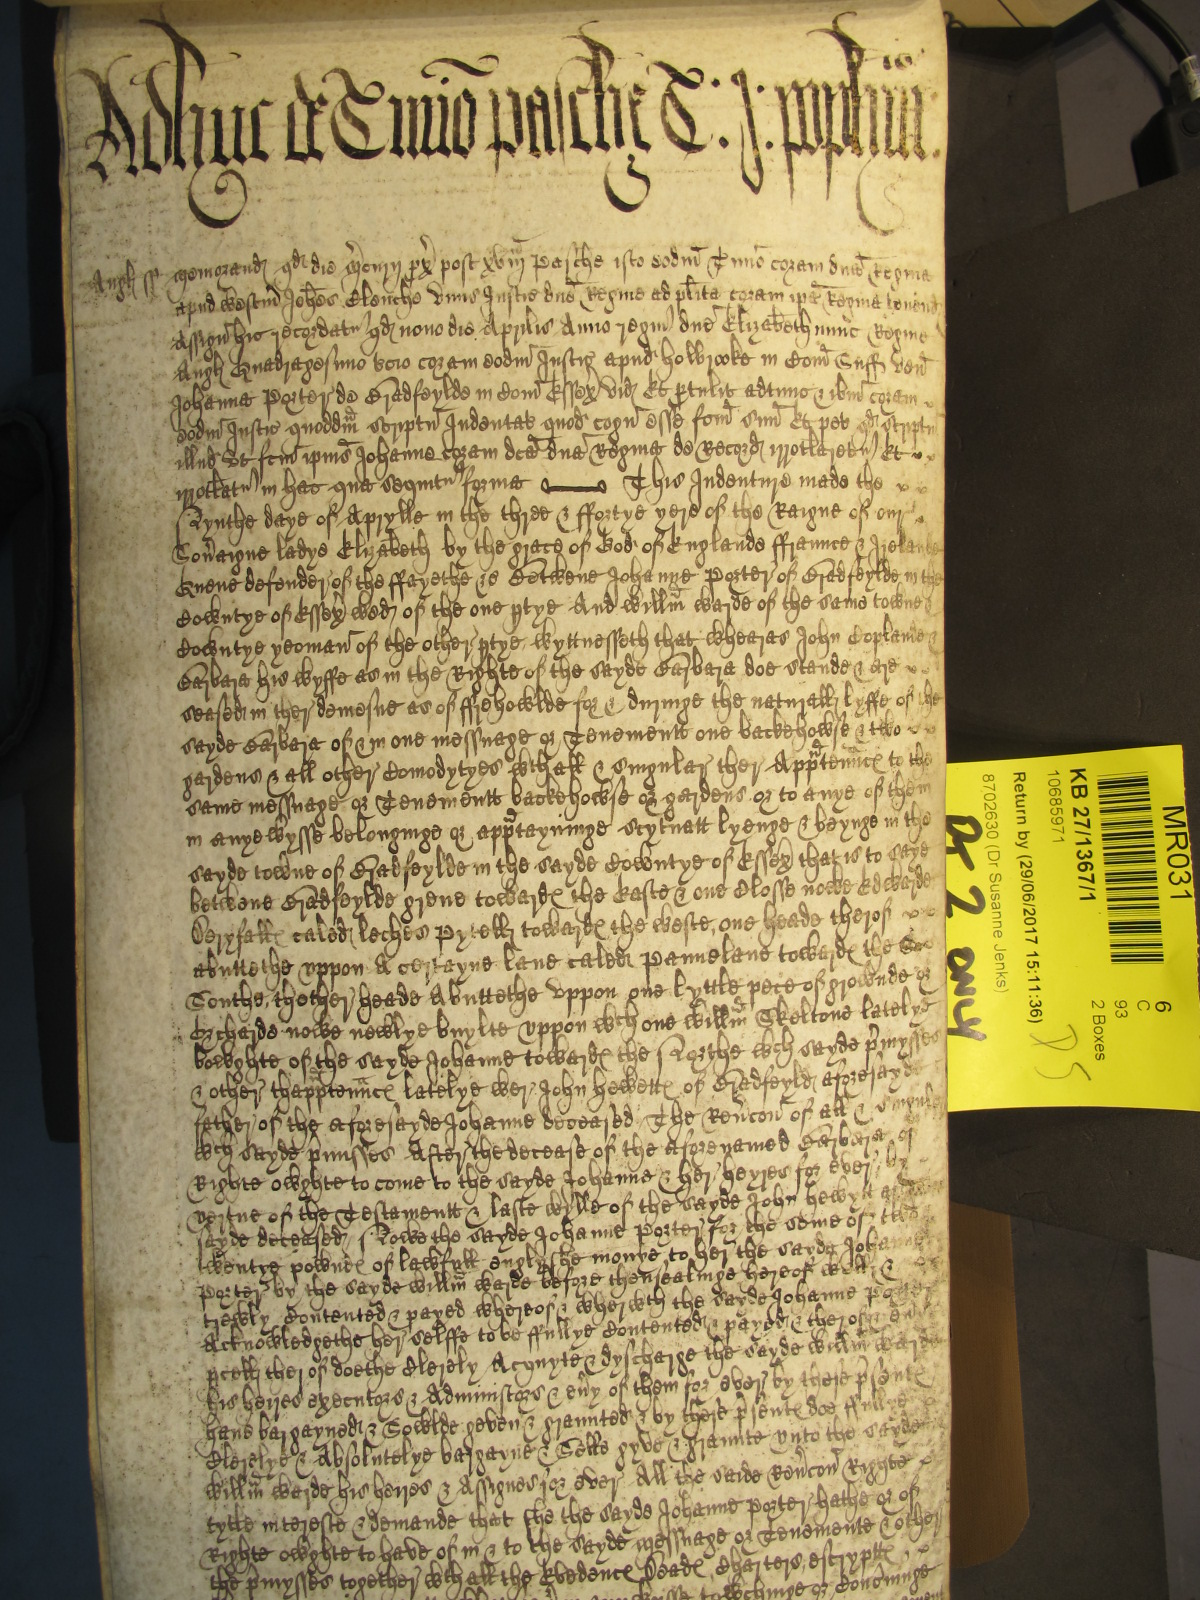 Adhuc de Tmiō pasche T: J: popham:
Angl ss Memorand qd die M̄curii px̄ post xviij Pasche isto eodm̄ Tmiō coram dnā Regina
apud Westm̄ Johes Clenche unus Justic dnē Regine ad pl̄ita coram ipā Regina tenend
Assign̄ hic recordatr qd nono die Aprilis Anno regni dnē Elizabeth nunc Regine
Angl Quadragesimo tcio coram eodm̄ Justic apud holbrooke in Com̄ Suff ven̄
Johanna Porter de Bradfeylde in Com̄ Essex vid Et ptulit adtunc & ibm̄ coram
eodm̄ Justic quoddm̄ scriptū Indentat quod cogn̄ esse fcm̄ suū Et pet qd scriptū
illud ut fcm̄ ipius Johanne coram dcā dnā Regina de Record irrotlaretr Et
irrotlatr in hac que sequitr forma This Indenture made the
Nynthe daye of Aprylle in the thrde & ffortye yere of the Raigne of our
Sovaigne ladye Elizabeth by the grace of God of Englande ffraunce & Irelande
Quene defender of the ffayethe &c Betwene Johanne Porter of Bradfeylde in the
Cowntye of Essex wed of the one ptye And Willm̄ Warde of the same towne &
Cowntye yeoman of the other ptye, Wyttnesseth that wheras John Coplande &
Barbara his wyffe as in the Righte of the sayde Barbara doe stande & are
seased in ther demesne as of ffrehowlde for & duringe the naturall lyffe of the
sayde Barbara of & in one messuage or Tenementt one backehowse & two
gardens & all other Comodytyes wth all & singular ther Appr̄tennc to the
same messuage or Tenementt backehowse or gardens or to anye of them
in anye wysse belonginge or apprtayninge scytuatt lyenge & beynge in the
sayde towne of Bradfeylde in the sayde Cowntye of Essex that is to saye
betwene Bradfeylde grene toward the Easte & one Closse nowe Edwarde
caled leches Pytell toward the weste, one heade therof
abuttethe uppon A certayne lane caled Pannelane toward the
Southe, thother heade Abuttethe uppon one lyttle pece of grownde or
Orcharde nowe newlye buylte uppon wch one Willm̄ Skeltone latelye
bowghte of the sayde Johanne toward the Northe wch sayde pmysses
& other thappr̄tennc latelye wer John hewett of Bradfeyld aforesayde
father of the aforesayde Johanne deceased The Revcon of all & singuler
wch sayde pmisses After the decease of the aforenamed Barbara of
Righte owghte to come to the sayde Johanne & her heyres for ever, by
vertue of the Testamentt & laste wylle of the sayde John hewytt
sayde deceased, Nowe the sayde Johanne Porter for the some of two
twentye pownd of lawfull englyshe monye to her the sayde Johanne
Porter by the sayde Willm̄ Warde before thensealinge hereof well &
trewly Contented & payed whereof & wherwth the sayde Johanne Porter
Acknowledgethe her selffe to be ffullye Contented & payed & therof &
pcell therof doethe Clerely Acquyte & dyscharge the sayde Willm̄ Warde
his heires executors & Administors & evy of them for ever by these psent
have bargayned & Sowlde geven & graunted & by these psent doe ffullye
Clerelye & Absolutelye bargayne & Selle gyve & graunte unto the sayde
Willm̄ Warde his heires & Assignes for ever All the saide Revcon Righte
tytle intereste & demande that she the sayde Johanne Porter hathe or of
Righte owghte to have of in & to the sayde messuage or Tenemente & other
the pmysses together wth all the Evedenc Dead, charters, escryptt
towchinge or Concninge
MR031
6
C
93
2 Boxes
KB 27/1367/1
10685971
Return by (29/06/2017 15:11:36)
8702630 (Dr Susanne Jenks)
Br 2 only